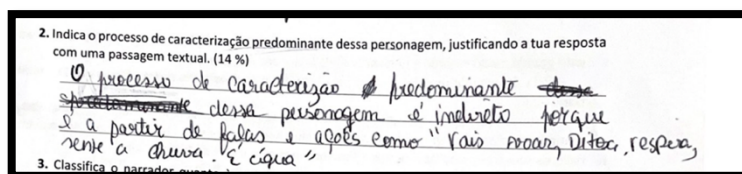 2. Indica o processo de caracterização predominante dessa personagem, justificando a tua resposta
com uma passagem textual. (14 %)
O processo de caracterizão predominante
dessa personagem é indireto porque
é a partir de falas e ações como "Vais voar, Ditosa, respira,
sente a chuva. É água"
3. Classifica o narrador